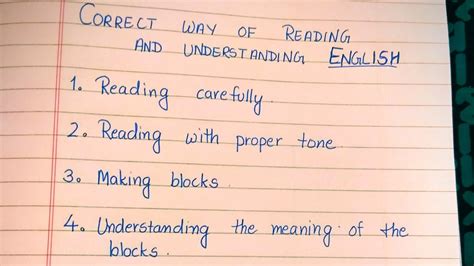 CORRECT WAY OF READING
AND UNDERSTANDING ENGLISH
1. Reading carefully.
2. Reading with proper tone.
3. Making blocks.
4. Understanding the meaning of the
blocks.